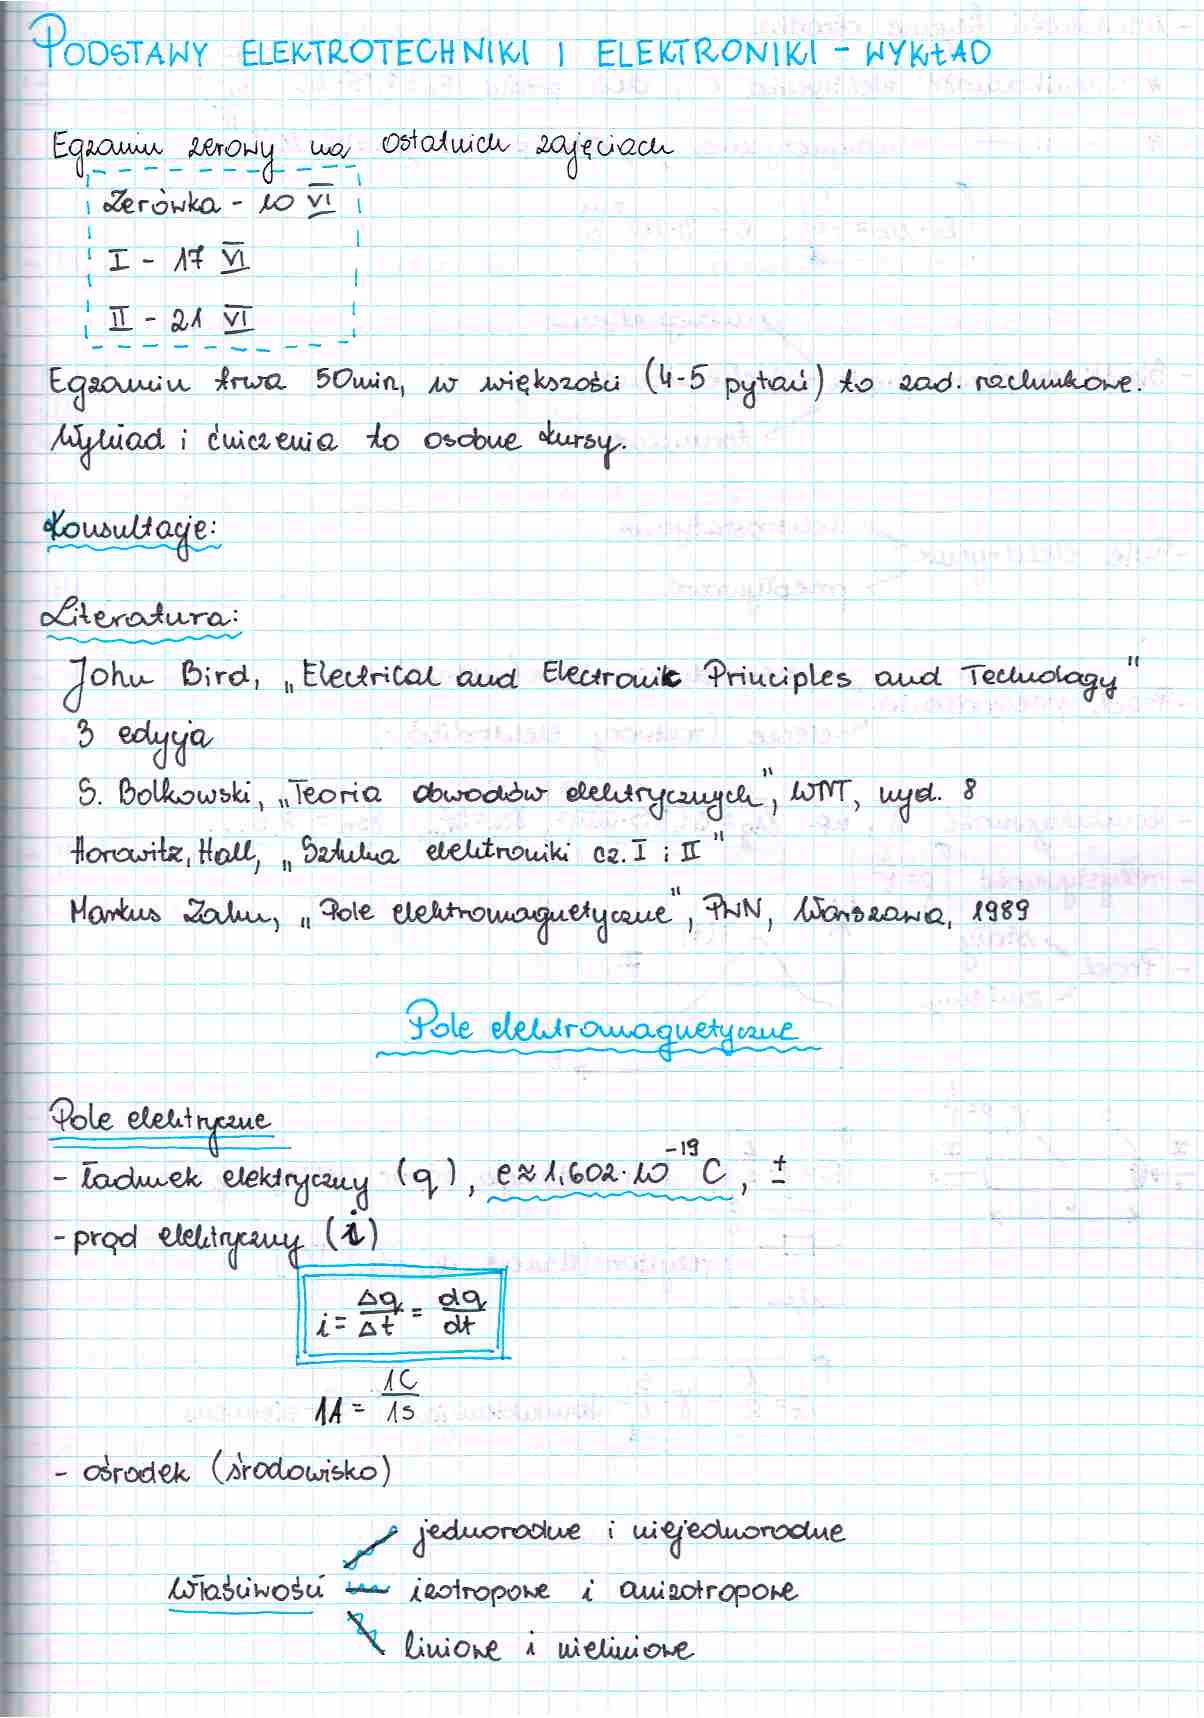 PODSTAWY ELEKTROTECHNIKI I ELEKTRONIKI - WYKŁAD
Egzamin zerowy na ostatnich zajęciach
Zerówka - 10 VI
I - 17 VI
II - 21 VI
Egzamin trwa 50min, w większości (4-5 pytań) to zad. rachunkowe.
Wykład i ćwiczenia to osobne kursy.
Konsultacje:
Literatura:
John Bird, „Electrical and Electronic Principles and Technology"
3 edycja
S. Bolkowski, „Teoria obwodów elektrycznych", WNT, wyd. 8
Horowitz, Hall, „Sztuka elektroniki cz. I i II"
Markus Zahn, „Pole elektromagnetyczne", PWN, Warszawa, 1989
Pole elektromagnetyczne
Pole elektryczne
- ładunek elektryczny (q), e ≈ 1,602·10⁻¹⁹ C, ±
- prąd elektryczny (i)
i = Δq/Δt = dq/dt
1A = 1C/1s
- ośrodek (środowisko)
jednorodne i niejednorodne
Właściwości — izotropowe i anizotropowe
liniowe i nieliniowe